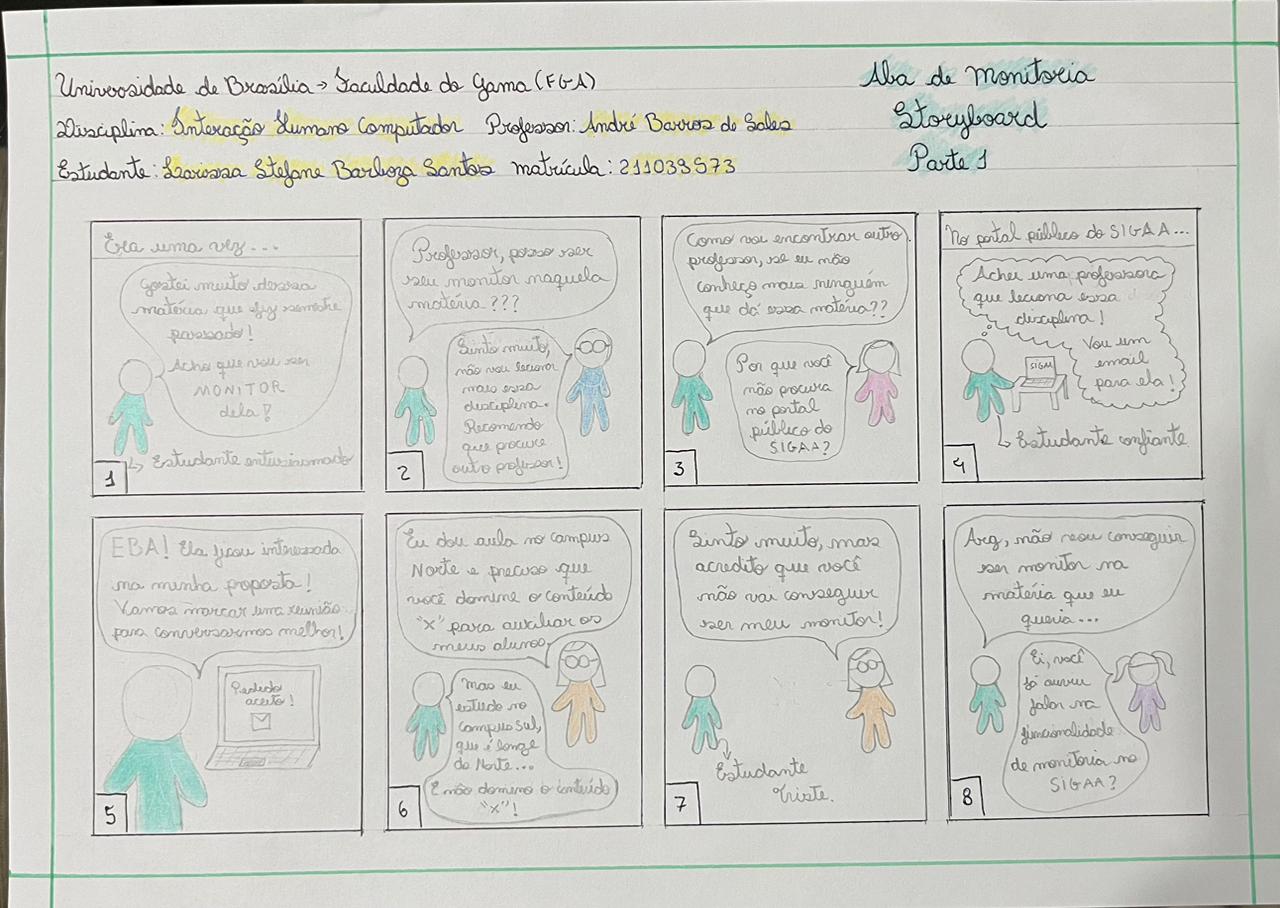 Universidade de Brasília → Faculdade do Gama (FGA)
Disciplina: Interação Humano Computador Professor: André Barros de Sales
Estudante: Larissa Stéfane Barboza Santos matrícula: 211039573
Aba de Monitoria
Storyboard
Parte 1
Era uma vez...
Gostei muito dessa
matéria que fiz semestre
passado!
Acho que vou ser
MONITOR
dela!
↳ Estudante entusiasmado
1
Professor, posso ser
seu monitor naquela
matéria???
Sinto muito,
não vou lecionar
mais essa
disciplina.
Recomendo
que procure
outro professor!
2
Como vou encontrar outro
professor, se eu não
conheço mais ninguém
que dá essa matéria??
Por que você
não procura
no portal
público do
SIGAA?
3
No portal público do SIGAA...
Achei uma professora
que leciona essa
disciplina!
Vou um
email
para ela!
SIGAA
↳ Estudante confiante
4
EBA! Ela ficou interessada
na minha proposta!
Vamos marcar uma reunião
para conversarmos melhor!
Pedido
aceito!
5
Eu dou aula no campus
Norte e preciso que
você domine o conteúdo
"x" para auxiliar os
meus alunos
Mas eu
estudo no
campus Sul,
que é longe
do Norte...
E não domino o conteúdo
"x"!
6
Sinto muito, mas
acredito que você
não vai conseguir
ser meu monitor!
Estudante
triste.
7
Arg, não vou conseguir
ser monitor na
matéria que eu
queria...
Ei, você
já ouviu
falar na
funcionalidade
de monitoria no
SIGAA?
8